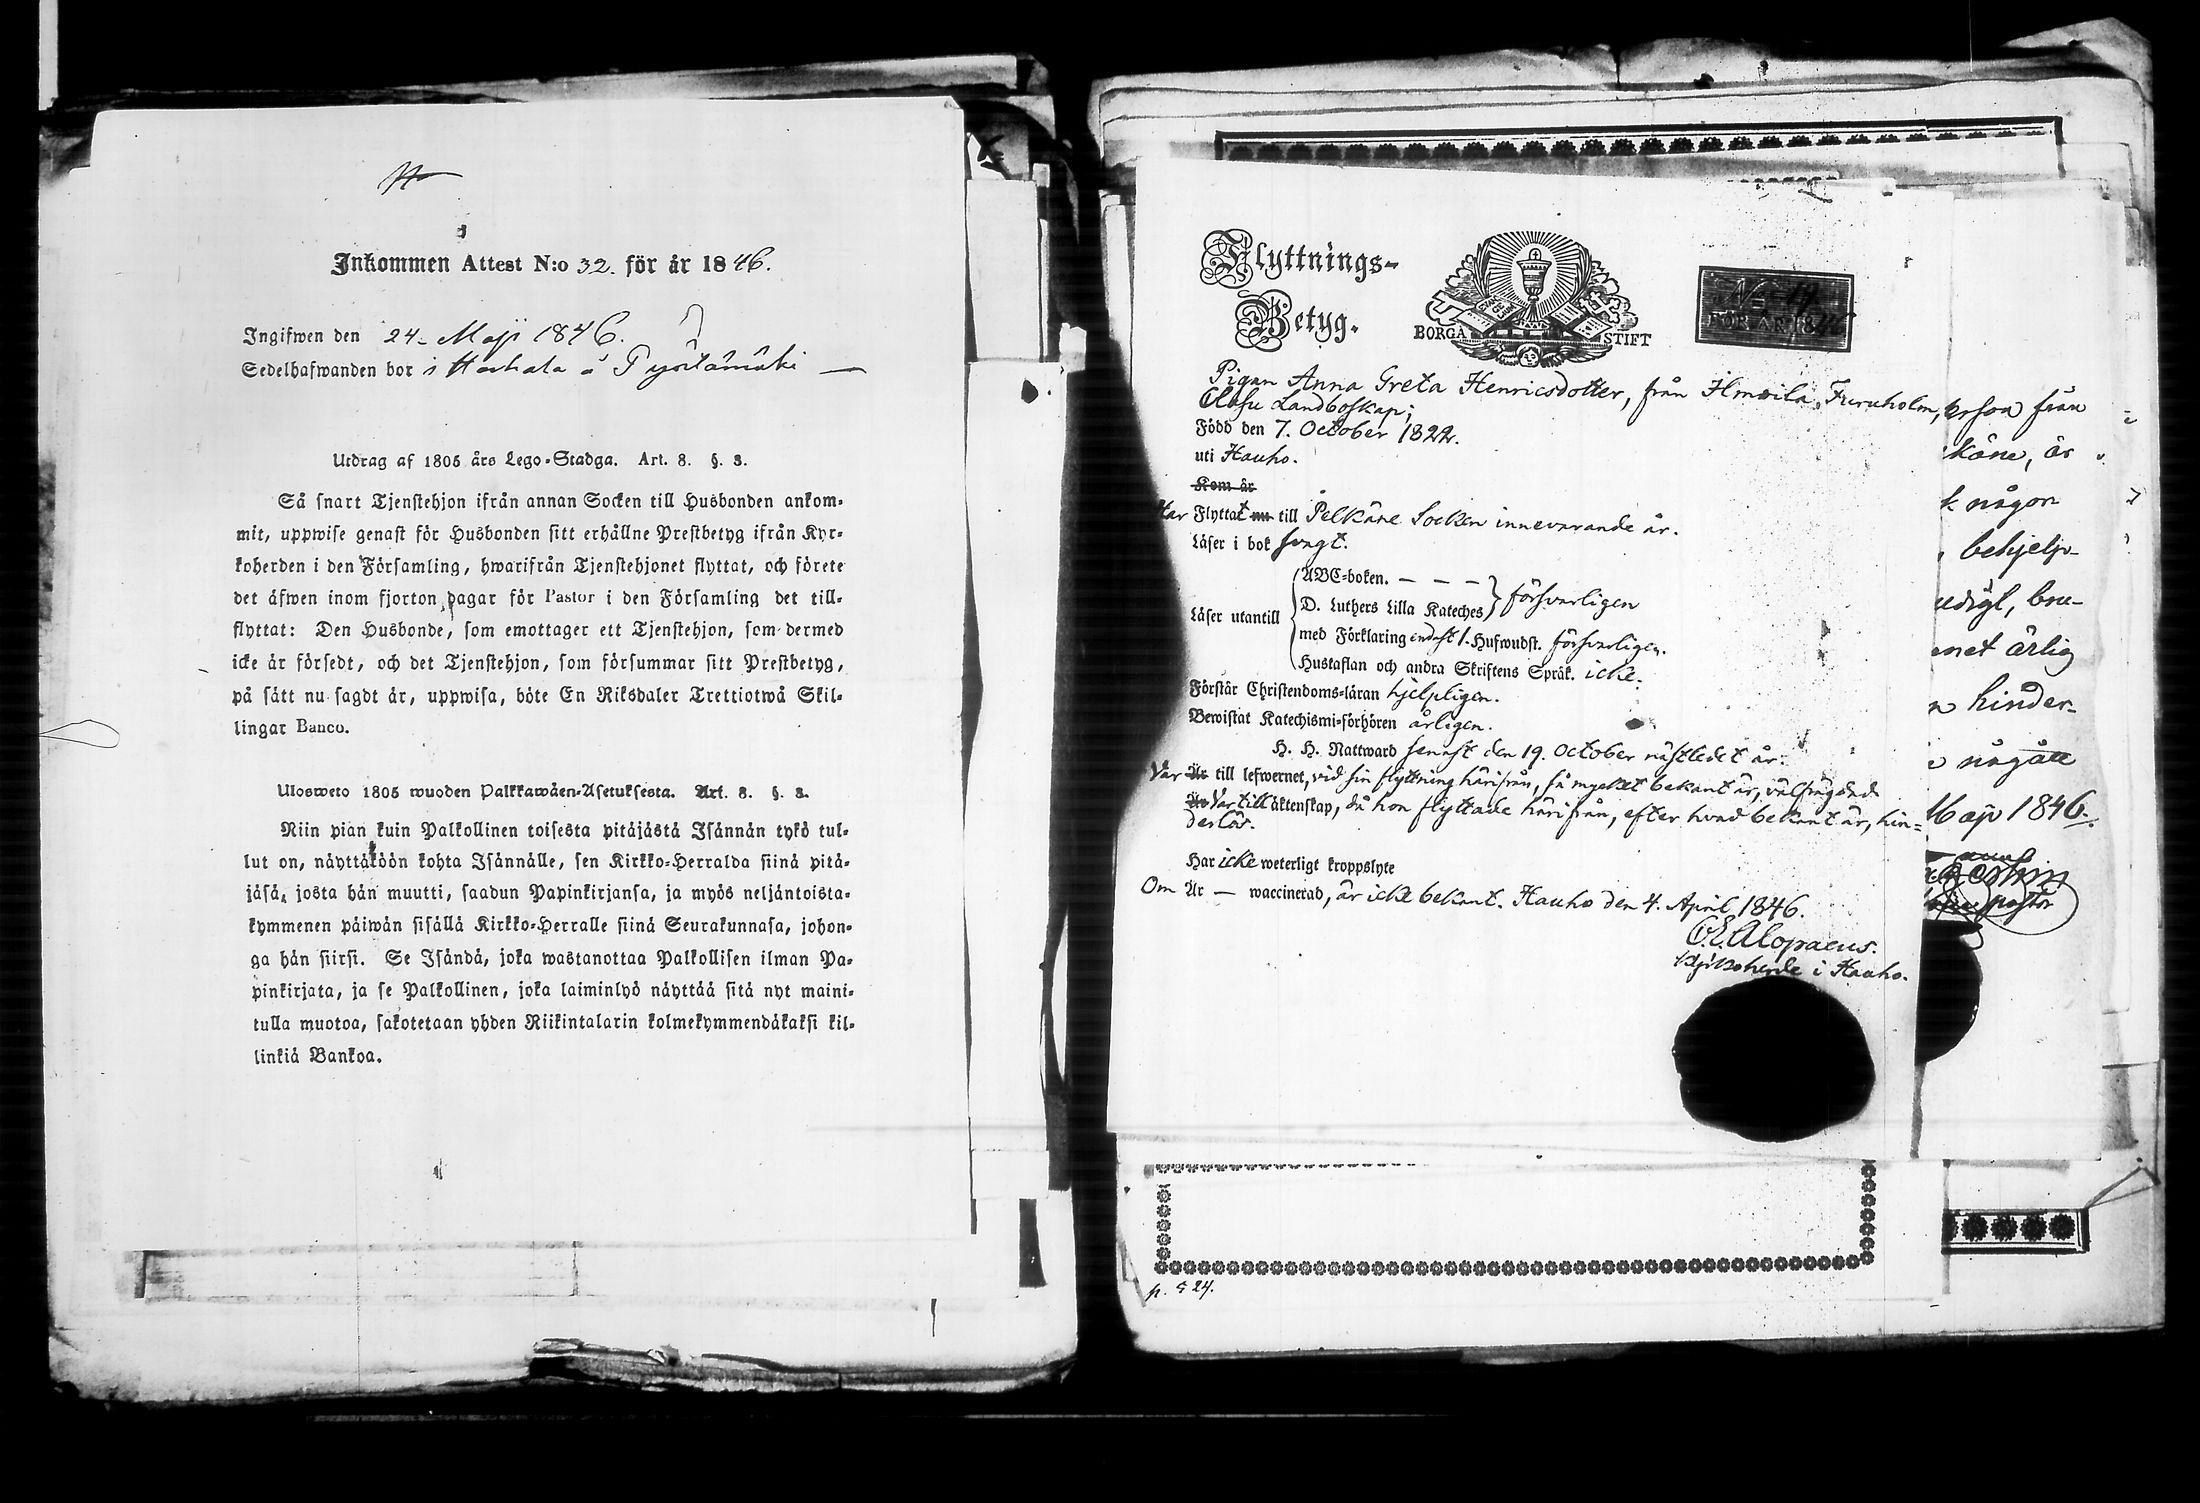 Inkommen Attest N:o 32. för år 1846.
Ingifwen den 24. Maji 1846.
Sedelhafwanden bor i
Utdrag af 1805 års Lego-Stadga. Art. 8. §. 3.
Så snart Tjenstehjon ifrån annan Socken till Husbonden ankom-
mit, uppwise genast för Husbonden sitt erhållne Prestbetyg ifrån Kyr-
koherden i den Församling, hwarifrån Tjenstehjonet flyttat, och förete
det äfwen inom fjorton dagar för Pastor i den Församling det till-
flyttat: Den Husbonde, som emottager ett Tjenstehjon, som dermed
icke är försedt, och det Tjenstehjon, som försummar sitt Prestbetyg,
på sätt nu sagdt är, uppwisa, böte En Riksdaler Trettiotwå Skil-
lingar Banco.
Ulosweto 1805 wuoden Palkkawäen-Asetuksesta. Art. 8. §. 3.
Niin pian kuin Palkollinen toisesta pitäjästä Isännän tykö tul-
lut on, näyttäköön kohta Isännälle, sen Kirkko-Herralda siinä pitä-
jäsä, josta hän muutti, saadun Papinkirjansa, ja myös neljäntoista-
kymmenen päiwän sisällä Kirkko-Herralle siinä Seurakunnasa, johon-
ga hän siirsi. Se Isändä, joka wastanottaa Palkollisen ilman Pa-
pinkirjata, ja se Palkollinen, joka laiminlyö näyttää sitä nyt maini-
tulla muotoa, sakotetaan yhden Riikintalarin kolmekymmendäkaksi kil-
linkiä Bankoa.
Flyttnings-
Betyg.
BORGÅ STIFT
N:o 19.
FÖR ÅR 1846
Pigan Anna Greta Henricsdotter, från Hmoila, Furuholm,
Clufu Landboskap;
Född den 7. October 1822.
uti Hauho.
Kom år
Har Flyttat nu till Pelkäne Socken innevarande år.
Läser i bok svagt.
Läser utantill
ABC-boken. — — —
D. Luthers Lilla Kateches försvarligen
med Förklaring endast 1. Hufwudst. försvarligen.
Hustaflan och andra Skriftens Språk. icke.
Förstår Christendoms-läran hjelpligen.
Bewistat Katechismi-förhören årligen.
H. H. Nattward senast den 19. October nästledet år.
Var Är till lefwernet, vid sin flyttning härifrån, så mycket bekant är, välfrägdad
Är Var till äktenskap, då hon flyttade härifrån, efter hvad bekant är, hin-
derlös.
Har icke weterligt kroppslyte
Om Är — waccinerad, är icke bekant. Hauho den 4. April 1846.
C. E. Alopaeus.
Kyrkoherde i Hauho.
från
käne, är
k någon
behjelp-
net ärlig
n hinder-
Maji 1846.
pastor
p. 524.